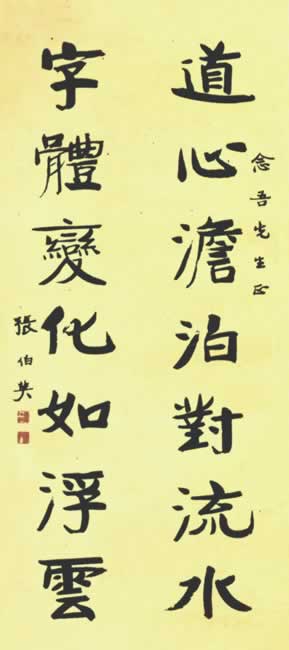 道心澹泊對流水
念吾先生正
字體變化如浮雲
張伯英